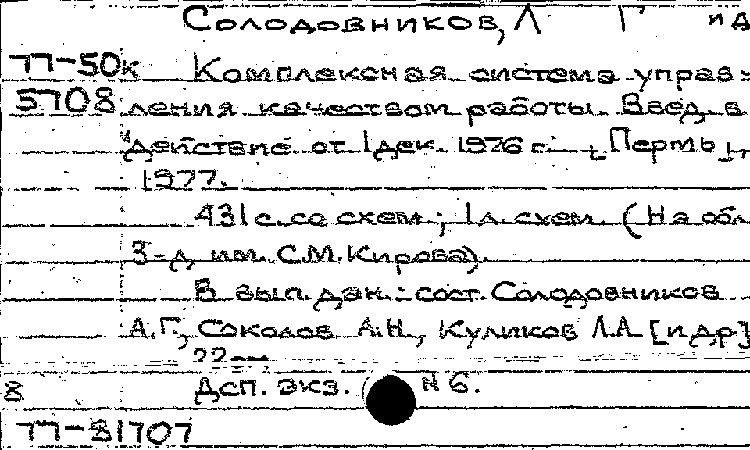 Солодовников, Л Г и д
77-50к Комплексная система управ-
5708 ления качеством работы. Введ. в
действие от 1 дек. 1976 г. [Пермь],
1977.
431 с. со схем.; 1 л. схем. (На обл.
З-д им. С.М. Кирова).
В вып. дан.: сост. Солодовников
А.Г., Соколов А.Н., Куликов Л.А. [и др]
22
8 Дсп. Экз. N 6.
77-81707